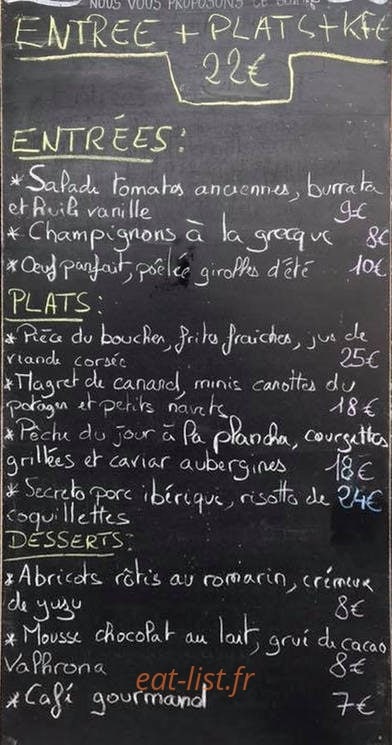 NOUS VOUS PROPOSONS CE
ENTREE + PLATS + KFE
22€
ENTRÉES:
* Salade tomates anciennes, burrata
et huile vanille 9€
* Champignons à la grecque 8€
* Œuf parfait, poêlée girolles d'été 10€
PLATS:
* Pièce du boucher, frites fraiches, jus de
viande corsée 25€
* Magret de canard, minis carottes du
potager et petits navets 18€
* Pêche du jour à la plancha, courgettes
grillées et caviar aubergines 18€
* Secreto porc ibérique, risotto de 24€
coquillettes
DESSERTS:
* Abricots rôtis au romarin, crémeux
de yuzu 8€
* Mousse chocolat au lait, grué de cacao
Valhrona 8€
eat-list.fr
* Café gourmand 7€